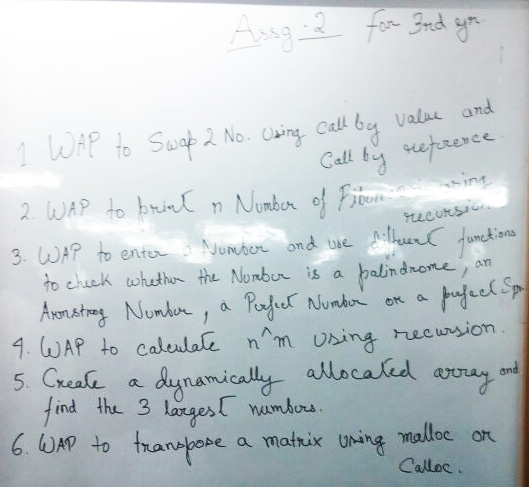 Assg-2 for 3rd yr.
1 WAP to Swap 2 No. Using call by value and
Call by reference.
2. WAP to print n Number of using
3. WAP to enter a Number and use different functions
to check whether the Number is a palindrome, an
Armstrog Number, a Perfect Number or a perfect
4. WAP to calculate n^m using recursion.
5. Create a dynamically allocated array and
find the 3 largest numbers.
6. WAP to transpose a matrix using malloc or
Calloc.